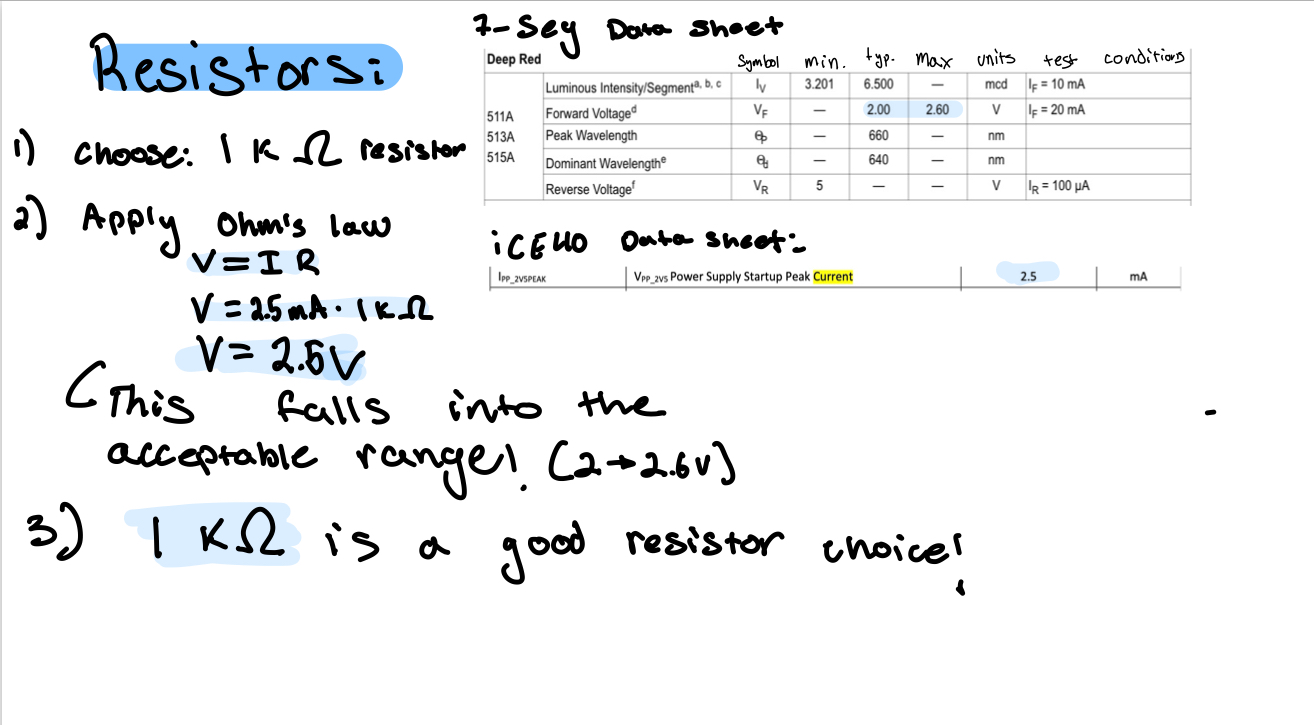 Resistors:
1) choose: 1 K Ω resistor
2) Apply Ohm's law
V = I R
V = 2.5 mA · 1 K Ω
V = 2.5 V
( This falls into the
acceptable range! (2→2.6V)
3) 1 KΩ is a good resistor choice!
7-Seg Data sheet
Deep Red Symbol min. typ. Max units test conditions
Luminous Intensity/Segmentᵃ, ᵇ, ᶜ Iv 3.201 6.500 — mcd IF = 10 mA
511A Forward Voltageᵈ VF — 2.00 2.60 V IF = 20 mA
513A Peak Wavelength — 660 — nm
515A Dominant Wavelengthᵉ — 640 — nm
Reverse Voltageᶠ VR 5 — — V IR = 100 µA
iCE40 Data sheet:
IPP_2V5PEAK VPP_2V5 Power Supply Startup Peak Current 2.5 mA